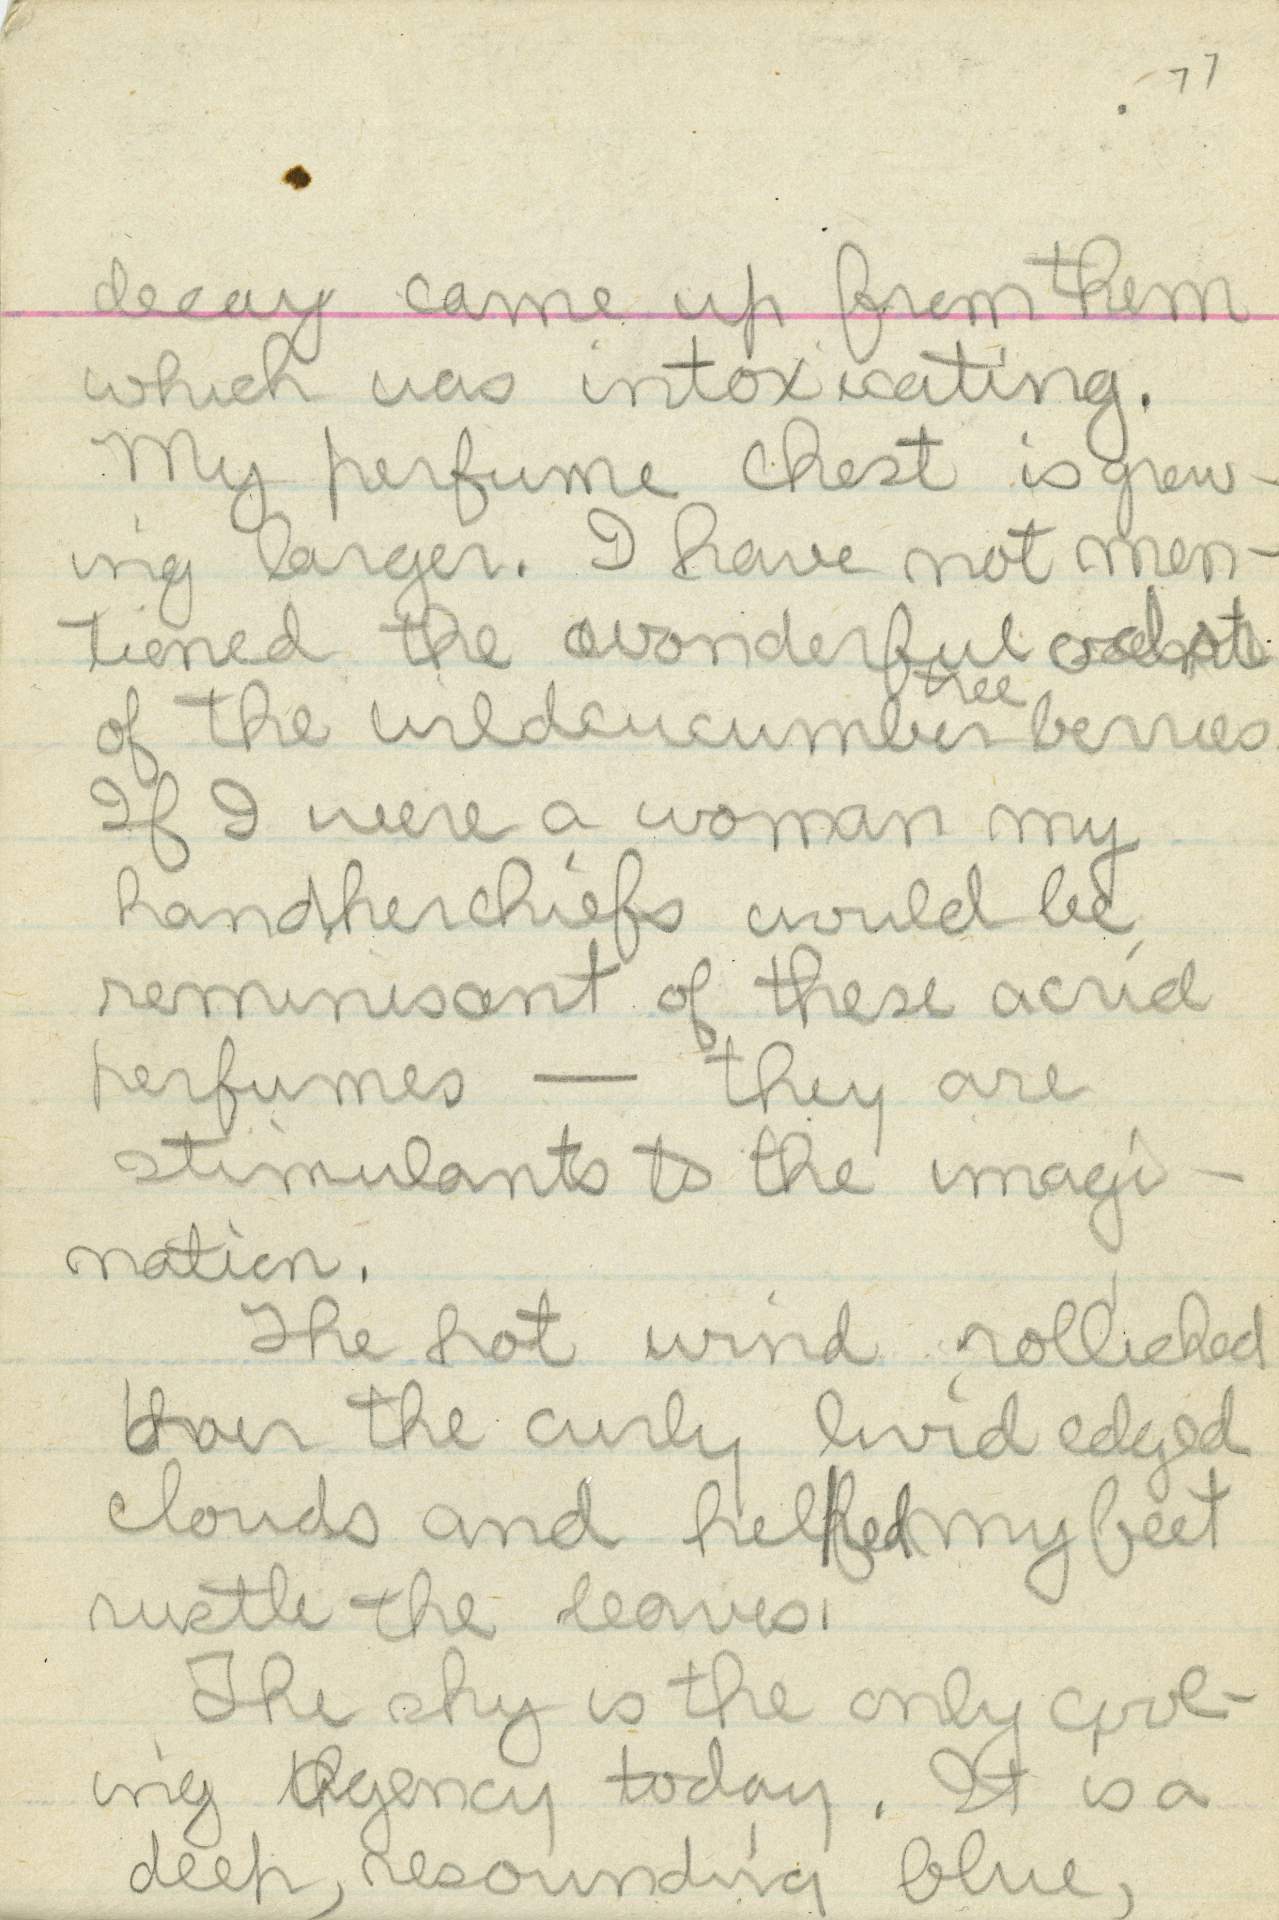 77
decay came up from them
which was intoxicating.
My perfume chest is grow-
ing larger. I have not men-
tioned the wonderful
tree
of the wildcucumber berries.
If I were a woman my
handkerchiefs would be
reminisant of these acrid
perfumes — they are
stimulants to the imagi-
nation.
The hot wind rollicked
over the curly livid edged
clouds and helped my feet
rustle the leaves.
The sky is the only cool-
ing agency today. It is a
deep, resounding blue,